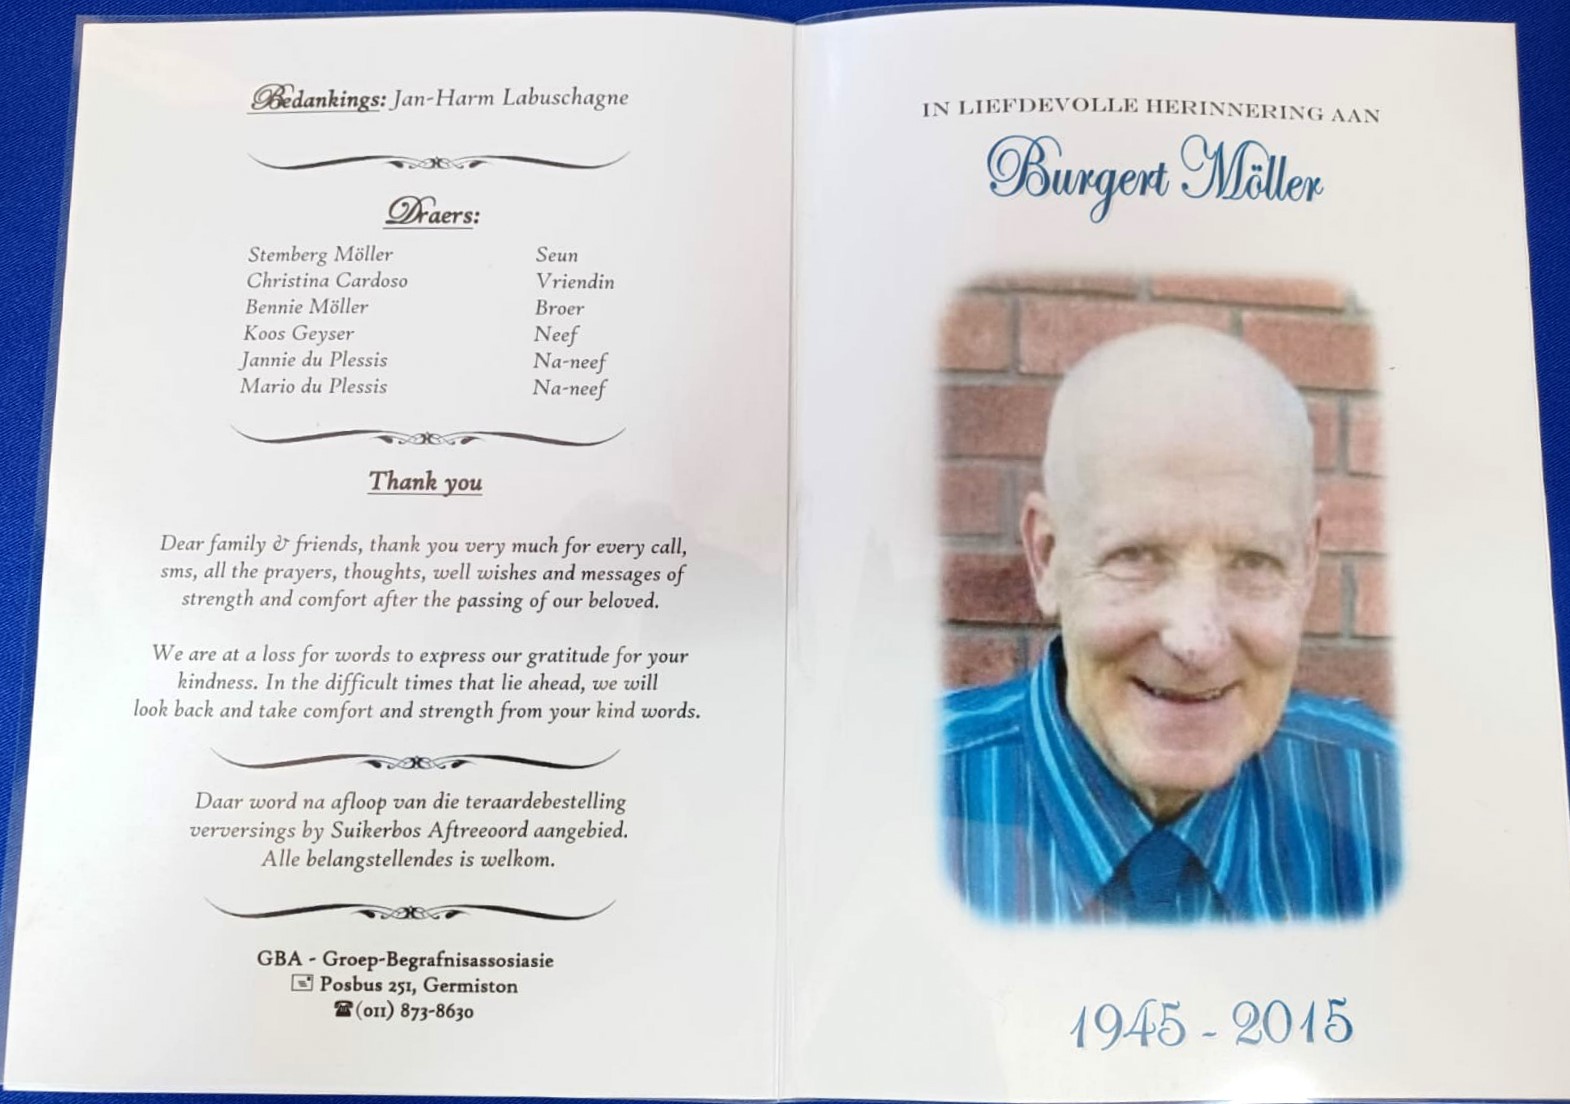 Bedankings: Jan-Harm Labuschagne
Draers:
Stemberg Möller Seun
Christina Cardoso Vriendin
Bennie Möller Broer
Koos Geyser Neef
Jannie du Plessis Na-neef
Mario du Plessis Na-neef
Thank you
Dear family & friends, thank you very much for every call,
sms, all the prayers, thoughts, well wishes and messages of
strength and comfort after the passing of our beloved.
We are at a loss for words to express our gratitude for your
kindness. In the difficult times that lie ahead, we will
look back and take comfort and strength from your kind words.
Daar word na afloop van die teraardebestelling
verversings by Suikerbos Aftreeoord aangebied.
Alle belangstellendes is welkom.
GBA - Groep-Begrafnisassosiasie
Posbus 251, Germiston
(011) 873-8630
IN LIEFDEVOLLE HERINNERING AAN
Burgert Möller
1945 - 2015